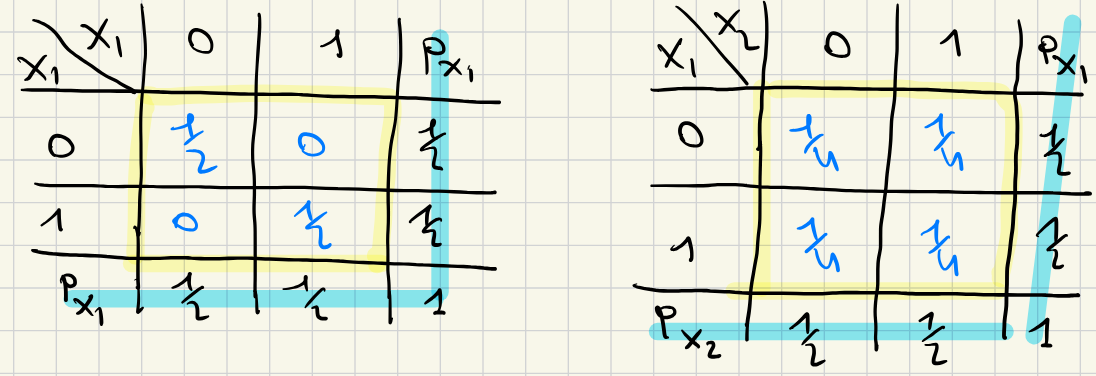 X₁ 0 1 P_X₁
X₁
0 1/2 0 1/2
1 0 1/2 1/2
P_X₁ 1/2 1/2 1
X₂ 0 1 P_X₁
X₁
0 1/4 1/4 1/2
1 1/4 1/4 1/2
P_X₂ 1/2 1/2 1